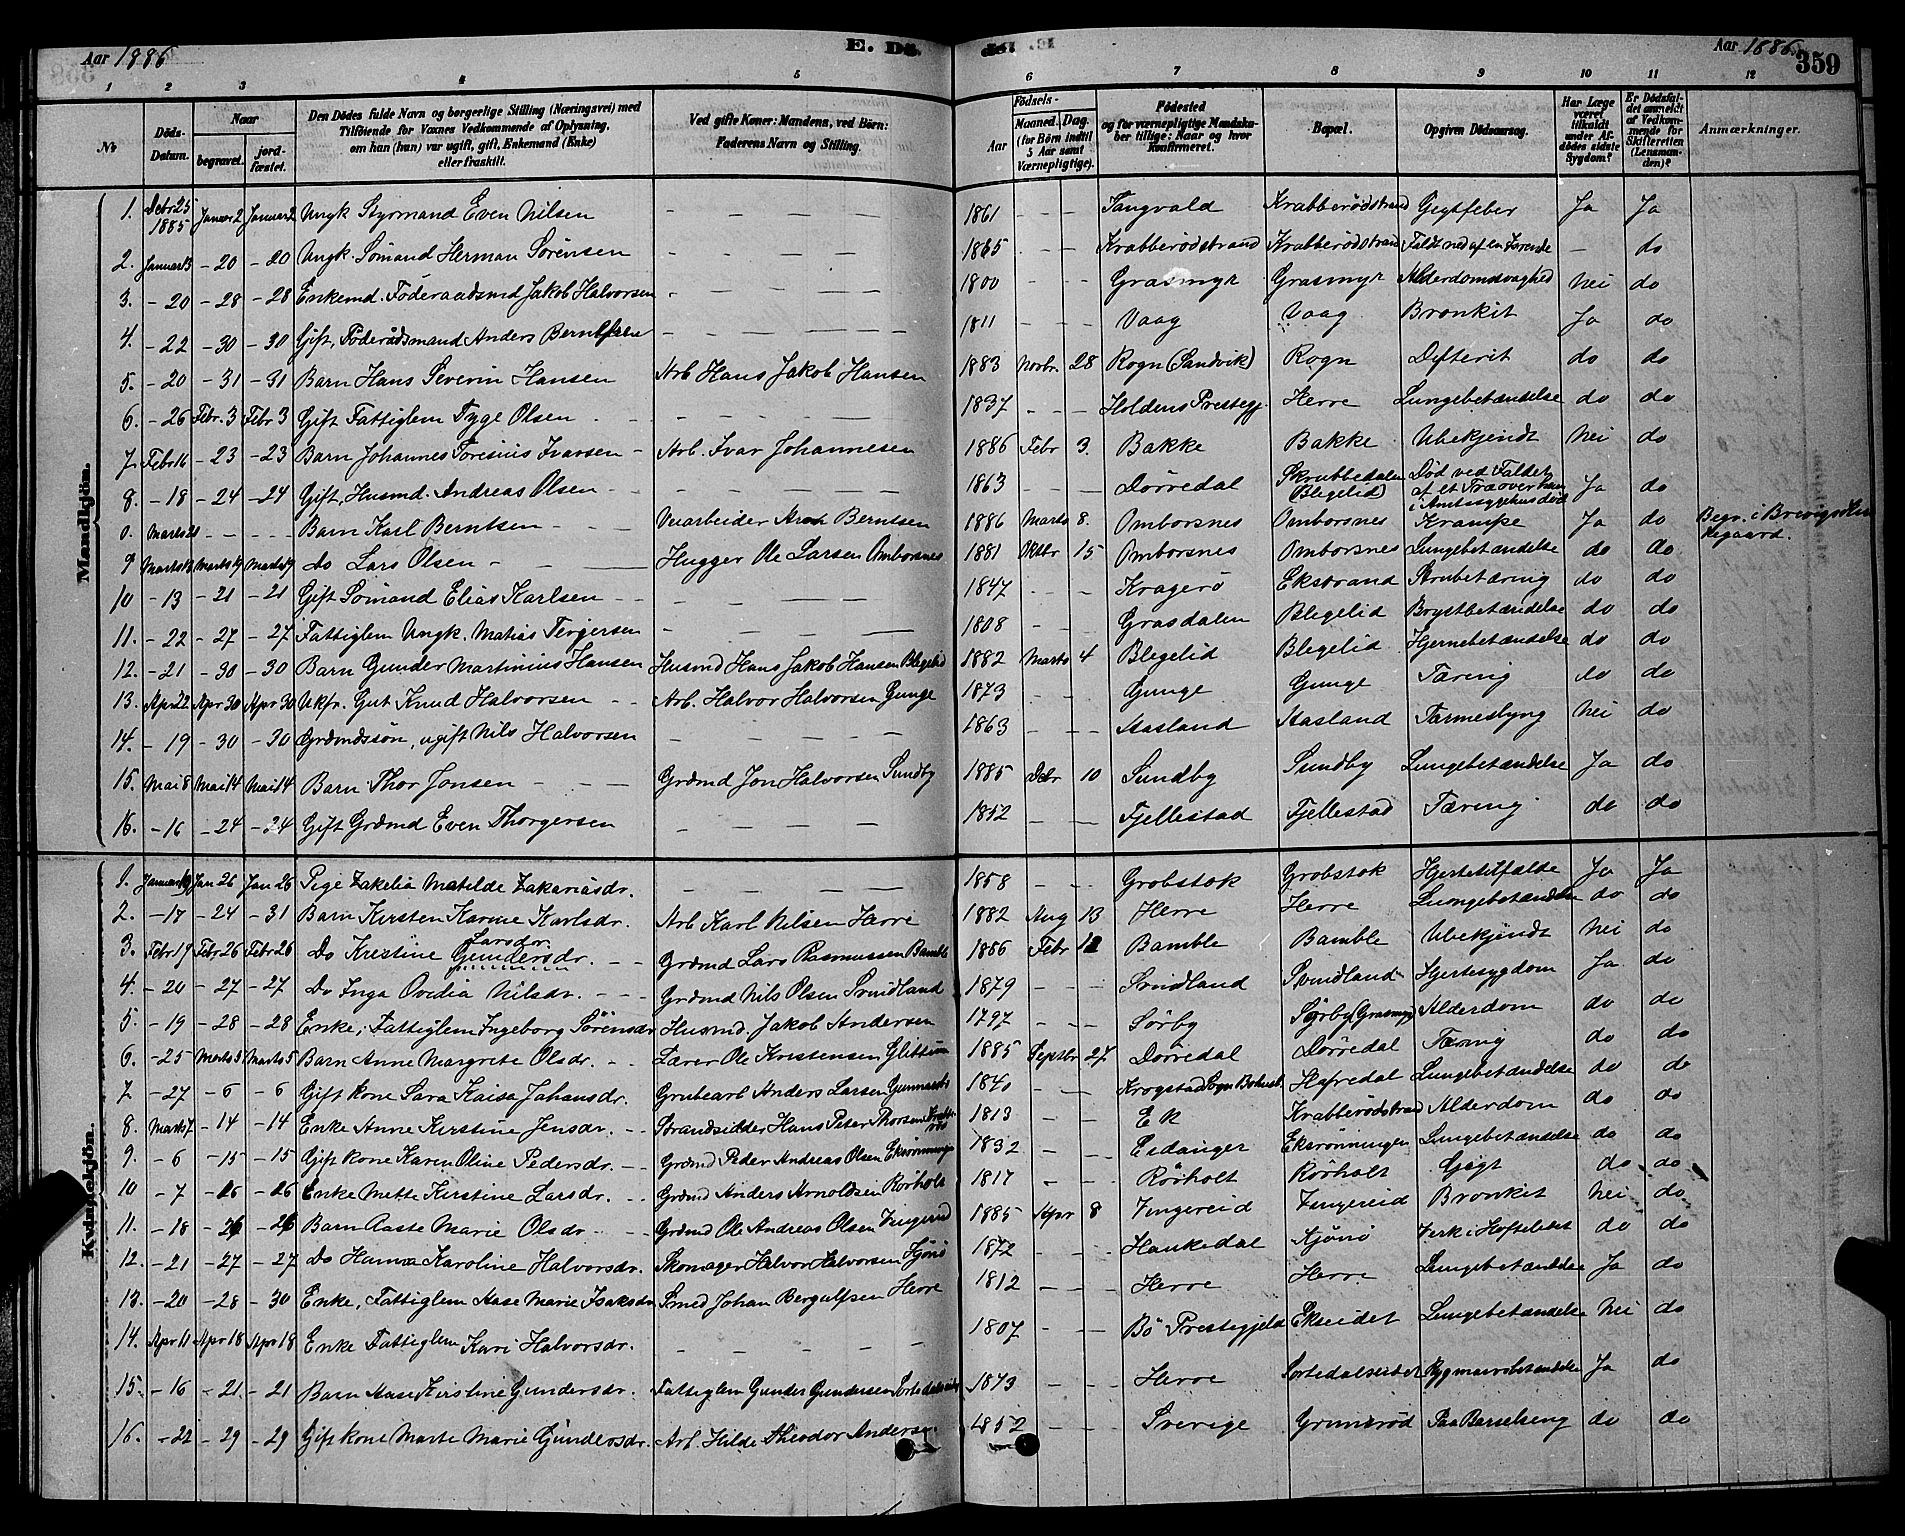 Aar 1886
E. Dø
Aar 1886
359
1 2 3 4 5 6 7 8 9 10 11 12
No
Døds-Datum.
Naar
begravet.
jordfæstet.
Den Dødes fulde Navn og borgerlige Stilling (Næringsvei) med
Tilføiende for Voxnes Vedkommende af Oplysning,
om han (hun) var ugift, gift, Enkemand (Enke)
eller fraskilt.
Ved gifte Koner: Mandens, ved Børn:
Faderens Navn og Stilling.
Fødsels-
Aar
Maaned. Dag.
(for Børn indtil
5 Aar samt
Værnepligtige).
Fødested
og for værnepligtige Mandskaber tillige: Naar og hvor
konfirmeret.
Bopæl.
Opgiven Dødsaarsag.
Har Læge
været
tilkaldt
under Afdødes sidste
Sygdom?
Er Dødsfaldet anmeldt
af Vedkommende for
Skifteretten
(Lensmanden)?
Anmærkninger.
Mandkjøn.
1. Decbr 25 1885 Januar 2 Januar 2 Ungk Styrmand Even Nilsen — 1861 - - - Tangvald Krabberødstrand Gigtfeber Ja Ja
2. Januar 13 - 20 - 20 Ungk. Sømand Herman Sørensen — 1865 - - Krabberødstrand Krabberødstrand Faldt ned af en — do
3. - 20 - 28 - 28 Enkemd. Føderaadsmd Jakob Halvorsen — 1800 - - - Grasmyr Grasmyr Alderdomssvaghed Nei do
4. - 22 - 30 - 30 Gift, Føderådsmand Anders Berntsen — 1811 - - - Vaag Vaag Bronkit Ja do
5. - 20 - 31 - 31 Barn Hans Severin Hansen Arb Hans Jakob Hansen 1883 Novbr. 28 Rogn (Sandvik) Rogn Difterit do do
6. - 26 Febr. 3 Febr 3 Gift Fattiglem Tyge Olsen — 1837 - - - Holdens Prestegj. Herre Lungebetændelse do do
7. Febr 16 - 23 - 23 Barn Johannes Toresius Ivarsen Arb. Ivar Johannesen 1886 Febr 3. Bakke Bakke Ubekjendt Nei do
8. - 18 - 24 - 24 Gift, Husmd. Andreas Olsen — 1863 - - Dørredal Skrubbedalen (Blegelid) Død ved Faldet af et Træ over ham i Amtssygehus død Ja do
0. Marts 21 - - Barn Karl Berntsen Berntsen 1886 Marts 8. Omborsnes Omborsnes Krampe Ja do Begr. i Brevigs Kirkegaard.
9 Marts 13 Marts 19 Marts 19 do Lars Olsen Hugger Ole Larsen Omborsnes 1881 Oktbr 15 Omborsnes Omborsnes Lungebetændelse do do
10 - 13 - 21 - 21 Gift Sømand Elias Karlsen — 1847 - - - Kragerø Ekstrand Strubetæring do do
11. - 22 - 27 - 27 Fattiglem Ungk. Matias Tergersen — 1808 - - Grasdalen Blegelid Brystbetændelse do do
12. - 21 - 30 - 30 Barn Gunder Martinius Hansen Husmd Hans Jakob Hansen Blegelid 1882 Marts 4 Blegelid Blegelid Hjernebetændelse do do
13. Apr 22 Apr 30 Apr 30 Ukfr. Gut Knud Halvorsen Arb. Halvor Halvorsen Gunge 1873 - - Gunge Gunge Tæring do do
14. - 19 - 30 - 30 Grdmdssøn, ugift Nils Halvorsen — 1863 - - Aasland Aasland Tarmeslyng Nei do
15. Mai 8 Mai 14 Mai 14 Barn Thor Jonsen Grdmd Jon Halvorsen Sundby 1885 Dcbr 10 Sundby Sundby Lungebetændelse Ja do
16. - 16 - 24 - 24 Gift Grdmd Even Thorgersen — 1852 - - Fjellestad Fjellestad Tæring do do
Kvindekjøn.
1. Januar 19 Jan 26 Jan 26 Pige Zakelia Matilde Zakariasdr. — 1858 - - Grobstok Grobstok Hjertetilfælde Ja Ja
2. - 17 - 24 - 31 Barn Kirsten Karine Karlsdr. Arb Karl Nilsen Herre 1882 Aug 13 Herre Herre Lungebetændelse do do
3. Febr 19 Febr 26 Febr 26 Do Kristine Gundersdr. Larsdr. Grdmd Lars Rasmussen Bamble 1886 Febr 12 Bamble Bamble Ubekjendt Nei do
4. - 20 - 27 - 27 Do Inga Ovedia Nilsdr. Grdmd Nils Olsen Svindland 1879 - - Svindland Svindland Hjertesygdom Ja do
5. - 19 - 28 - 28 Enke, Fattiglem Ingeborg Sørensdr Husmd. Jakob Andersen 1797 - - Sørby Sørby (Grasmyr) Alderdom do do
6. - 25 Marts 5 Marts 5 Barn Anne Margrete Olsdr. Lærer Ole Kristensen 1885 Septbr 27. Dørredal Dørredal Tæring do do
7. - 27 - 6 - 6 Gift kone Sara Kaisa Johansdr. Grubearb Anders Larsen 1840 - - Krogstad Sogn Bohusl. Hafredal Lungebetændelse do do
8. Marts 7 - 14 - 14 Enke Anne Kirstine Jensdr. Strandsidder Hans Peter Thorsen 1813 - - Ek Krabberødstrand Alderdom do do
9. - 6 - 15 - 15 Gift kone Karen Oline Pedersdr. Grdmd Peder Andreas Olsen Ekrønningen 1832 - - Eidanger Ekrønningen Lungebetændelse do do
10 - 7 - 26 - 26 Enke Mette Kirstine Larsdr. Grdmd Anders Arnoldsen Rørholt 1817 - - Rørholt Rørholt Gigt do do
11. - 18 - 26 - 26 Barn Aaste Marie Olsdr Grdmd Ole Andreas Olsen 1885 Apr 8 Ingereid Bronkit Nei do
12. - 21 - 27 - 27 Do Hanna Karoline Halvorsdr. Skomager Halvor Halvorsen 1872 - - Haukedal Verk i Hofteledet do do
13. - 20 - 28 - 30 Enke, Fattiglem Aase Marie Isaksdr Smed Johan Bergulfsen Herre 1812 - - Herre Herre Lungebetændelse Ja do
14. Apr 11 Apr 18 Apr 18 Enke Fattiglem Kari Halvorsdr. — 1807 - - Bø Prestegjeld Ekseidet Lungebetændelse Nei do
15. - 16 - 21. - 21 Barn Aase Kirstine Gundersdr. Fattiglem Gunder Gundersen 1873 - - Herre Sortedalseidet Rygmarvsbetændelse Ja do
16. - 22 - 29 - 29 Gift kone Marte Marie Gundersdr. Arb. Hilde Theodor Andersen 1852 - - Sverige Grumsrød Paa Barselseng do do